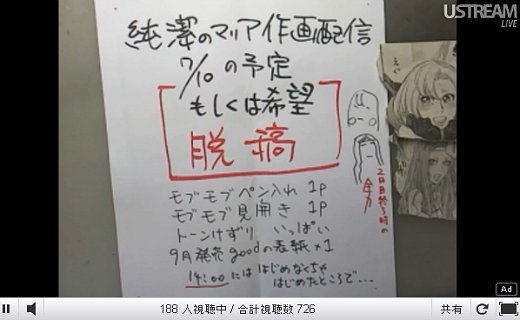 USTREAM
LIVE
純潔のマリア作画配信
7/10の予定
もしくは希望
脱稿
2日目終了時の
全力
モブモブペン入れ 1P
モブモブ見開き 1P
トーンけずり いっぱい
9月発売goodの表紙×1
14:00にははじめなくちゃ
はじめたところで...
Ad
188 人視聴中 / 合計視聴数 726
共有